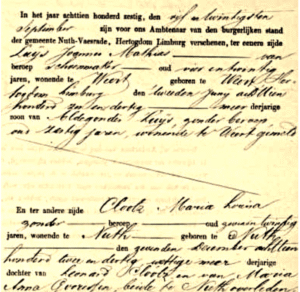 In het jaar achttien honderd zestig, den vijf en twintigsten
september zijn voor ons Ambtenaar van den burgerlijken stand
der gemeente Nuth-Vaesrade, Hertogdom Limburg verschenen, ter eenere zijde
Luijs Joannes Mathias van
beroep schoenmaker oud vier en twintig
jaren, wonende te Weert geboren te Weert Her
togdom Limburg den tweeden Juny achttien
honderd zes en dertig meer derjarige
zoon van Aldegonder Luijs, zonder beroep
jaren, wonende te Weert
En ter andere zijde Cloots Maria
zonder beroep oud zeven en twintig
jaren, wonende te Nuth geboren te Nuth
den december achttien
honderd twee en dertig meer derjarige
dochter van Leonard Cloots en van Maria
Anna beide te Nuth overleden